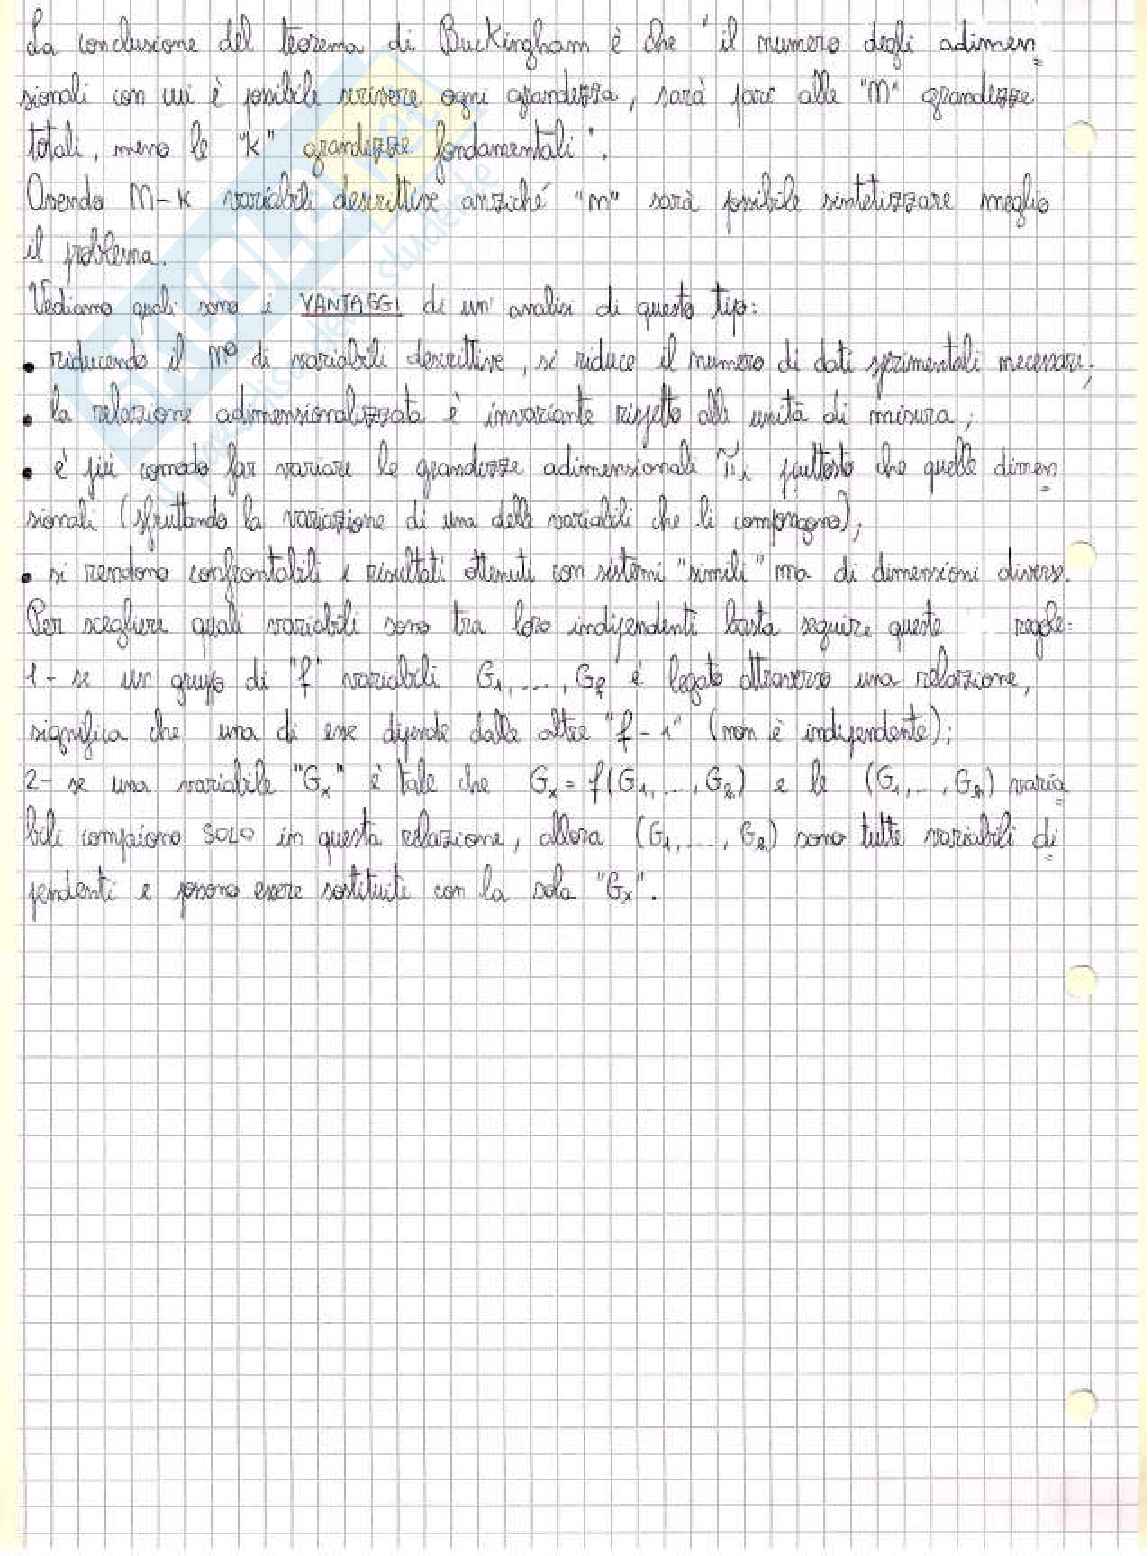 La conclusione del teorema di Buckingham è che "il numero degli adimen
sionali con cui è possibile scrivere ogni grandezza, sarà pari alle "m" grandezze
totali, meno le "k" grandezze fondamentali".
Avendo m-k variabili descrittive anziché "m" sarà possibile sintetizzare meglio
il problema.
Vediamo quali sono i VANTAGGI di un'analisi di questo tipo:
• riducendo il n° di variabili descrittive, si riduce il numero di dati sperimentali necessari;
• la relazione adimensionalizzata è invariante rispetto alle unità di misura;
• è più comodo far variare le grandezze adimensionali πi piuttosto che quelle dimen
sionali (sfruttando la variazione di una delle variabili che li compongono);
• si rendono confrontabili i risultati ottenuti con sistemi "simili" ma di dimensioni diverse.
Per scegliere quali variabili sono tra loro indipendenti basta seguire queste regole:
1- se un gruppo di "f" variabili G1, ..., Gf è legato attraverso una relazione,
significa che una di esse dipende dalle altre "f-1" (non è indipendente);
2- se una variabile "Gx" è tale che Gx = f(G1, ..., Gr) e le (G1, ..., Gr) varia
bili compaiono SOLO in questa relazione, allora (G1, ..., Gr) sono tutte variabili di
pendenti e possono essere sostituite con la sola "Gx".